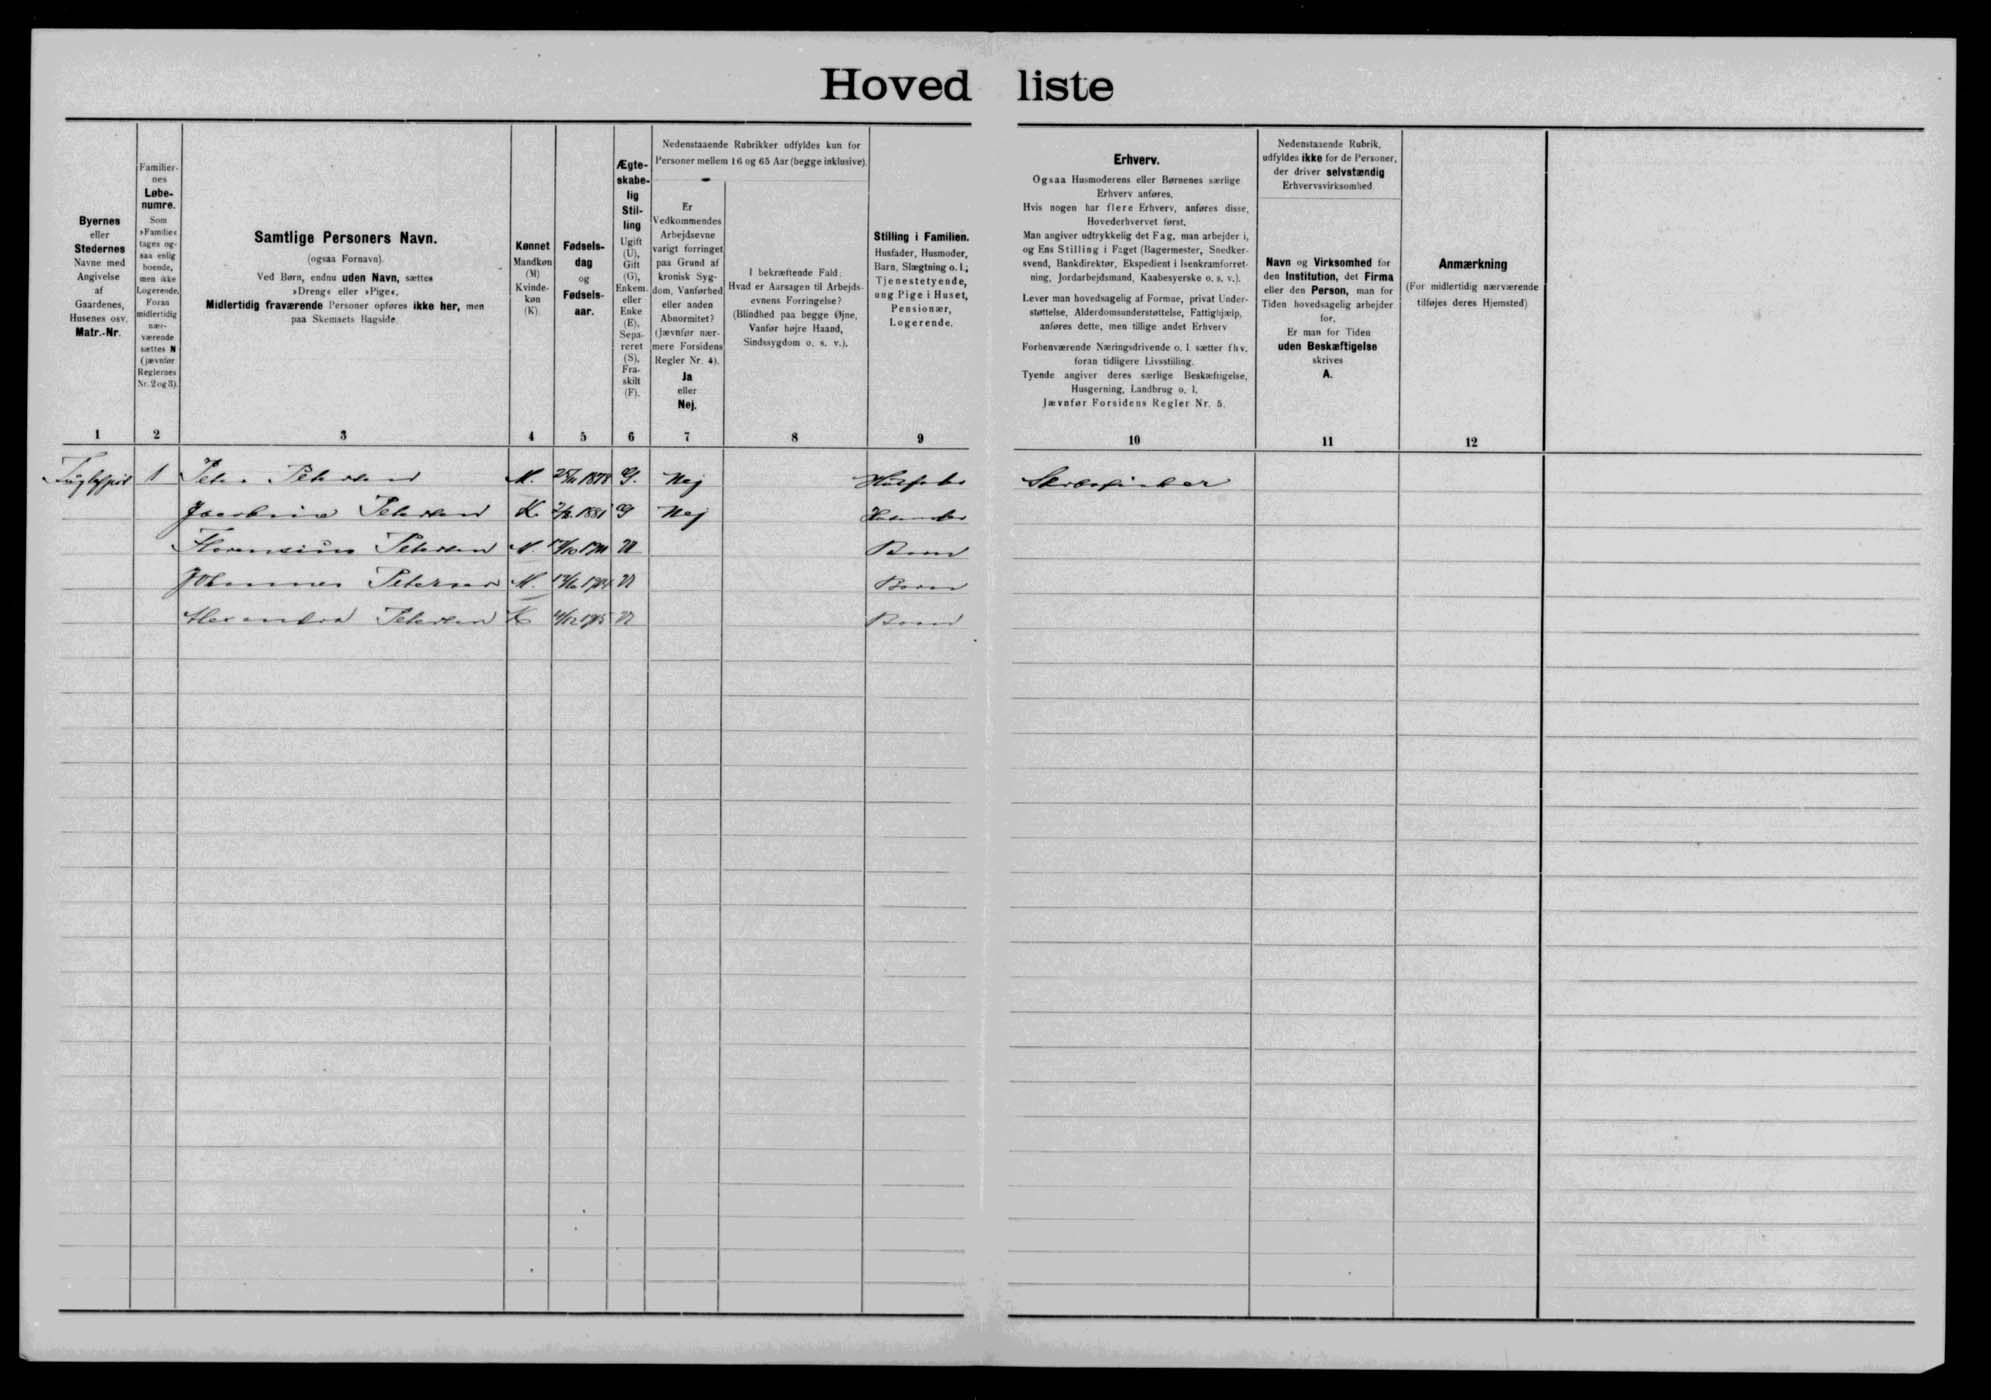 Hovedliste
Byernes
eller
Stedernes
Navne med
Angivelse
af
Gaardenes,
Husenes osv.
Matr.-Nr.
Familier-
nes
Løbe-
numre.
Som
»Familie«
tages og-
saa enlig
boende,
men ikke
Logerende.
Foran
midlertidig
nær-
værende
sættes N
(jævnfør
Reglernes
Nr. 2 og 3).
Samtlige Personers Navn.
(ogsaa Fornavn).
Ved Børn, endnu uden Navn, sættes
»Dreng« eller »Pige«.
Midlertidig fraværende Personer opføres ikke her, men
paa Skemaets Bagside.
Kønnet
Mandkøn
(M)
Kvinde-
køn
(K).
Fødsels-
dag
og
Fødsels-
aar.
Ægte-
skabe-
lig
Stil-
ling
Ugift
(U),
Gift
(G),
Enkem.
eller
Enke
(E),
Sepa-
reret
(S),
Fra-
skilt
(F).
Nedenstaaende Rubrikker udfyldes kun for
Personer mellem 16 og 65 Aar (begge inklusive).
Er
Vedkommendes
Arbejdsevne
varigt forringet
paa Grund af
kronisk Syg-
dom, Vanførhed
eller anden
Abnormitet?
(Jævnfør nær-
mere Forsidens
Regler Nr. 4).
Ja
eller
Nej.
I bekræftende Fald:
Hvad er Aarsagen til Arbejds-
evnens Forringelse?
(Blindhed paa begge Øjne,
Vanfør højre Haand,
Sindssygdom o. s. v.).
Stilling i Familien.
Husfader, Husmoder,
Barn, Slægtning o. l.;
Tjenestetyende,
ung Pige i Huset,
Pensionær,
Logerende.
Erhverv.
Ogsaa Husmoderens eller Børnenes særlige
Erhverv anføres.
Hvis nogen har flere Erhverv, anføres disse,
Hovederhvervet først.
Man angiver udtrykkelig det Fag, man arbejder i,
og Ens Stilling i Faget (Bagermester, Snedker-
svend, Bankdirektør, Ekspedient i Isenkramforret-
ning, Jordarbejdsmand, Kaabesyerske o. s. v.).
Lever man hovedsagelig af Formue, privat Under-
støttelse, Alderdomsunderstøttelse, Fattighjælp,
anføres dette, men tillige andet Erhverv
Forhenværende Næringsdrivende o. l. sætter fhv.
foran tidligere Livsstilling.
Tyende angiver deres særlige Beskæftigelse,
Husgerning, Landbrug o. l.
Jævnfør Forsidens Regler Nr. 5.
Nedenstaaende Rubrik,
udfyldes ikke for de Personer,
der driver selvstændig
Erhvervsvirksomhed
Navn og Virksomhed for
den Institution, det Firma
eller den Person, man for
Tiden hovedsagelig arbejder
for.
Er man for Tiden
uden Beskæftigelse
skrives
A.
Anmærkning
(For midlertidig nærværende
tilføjes deres Hjemsted)
1 2 3 4 5 6 7 8 9 10 11 12
1 Peter Petersen M. 1878 G. Nej Husfader
Petersen K 1881 G Nej Husmoder
Petersen M. U Barn
Johannes Petersen M. U Barn
Petersen K U Barn